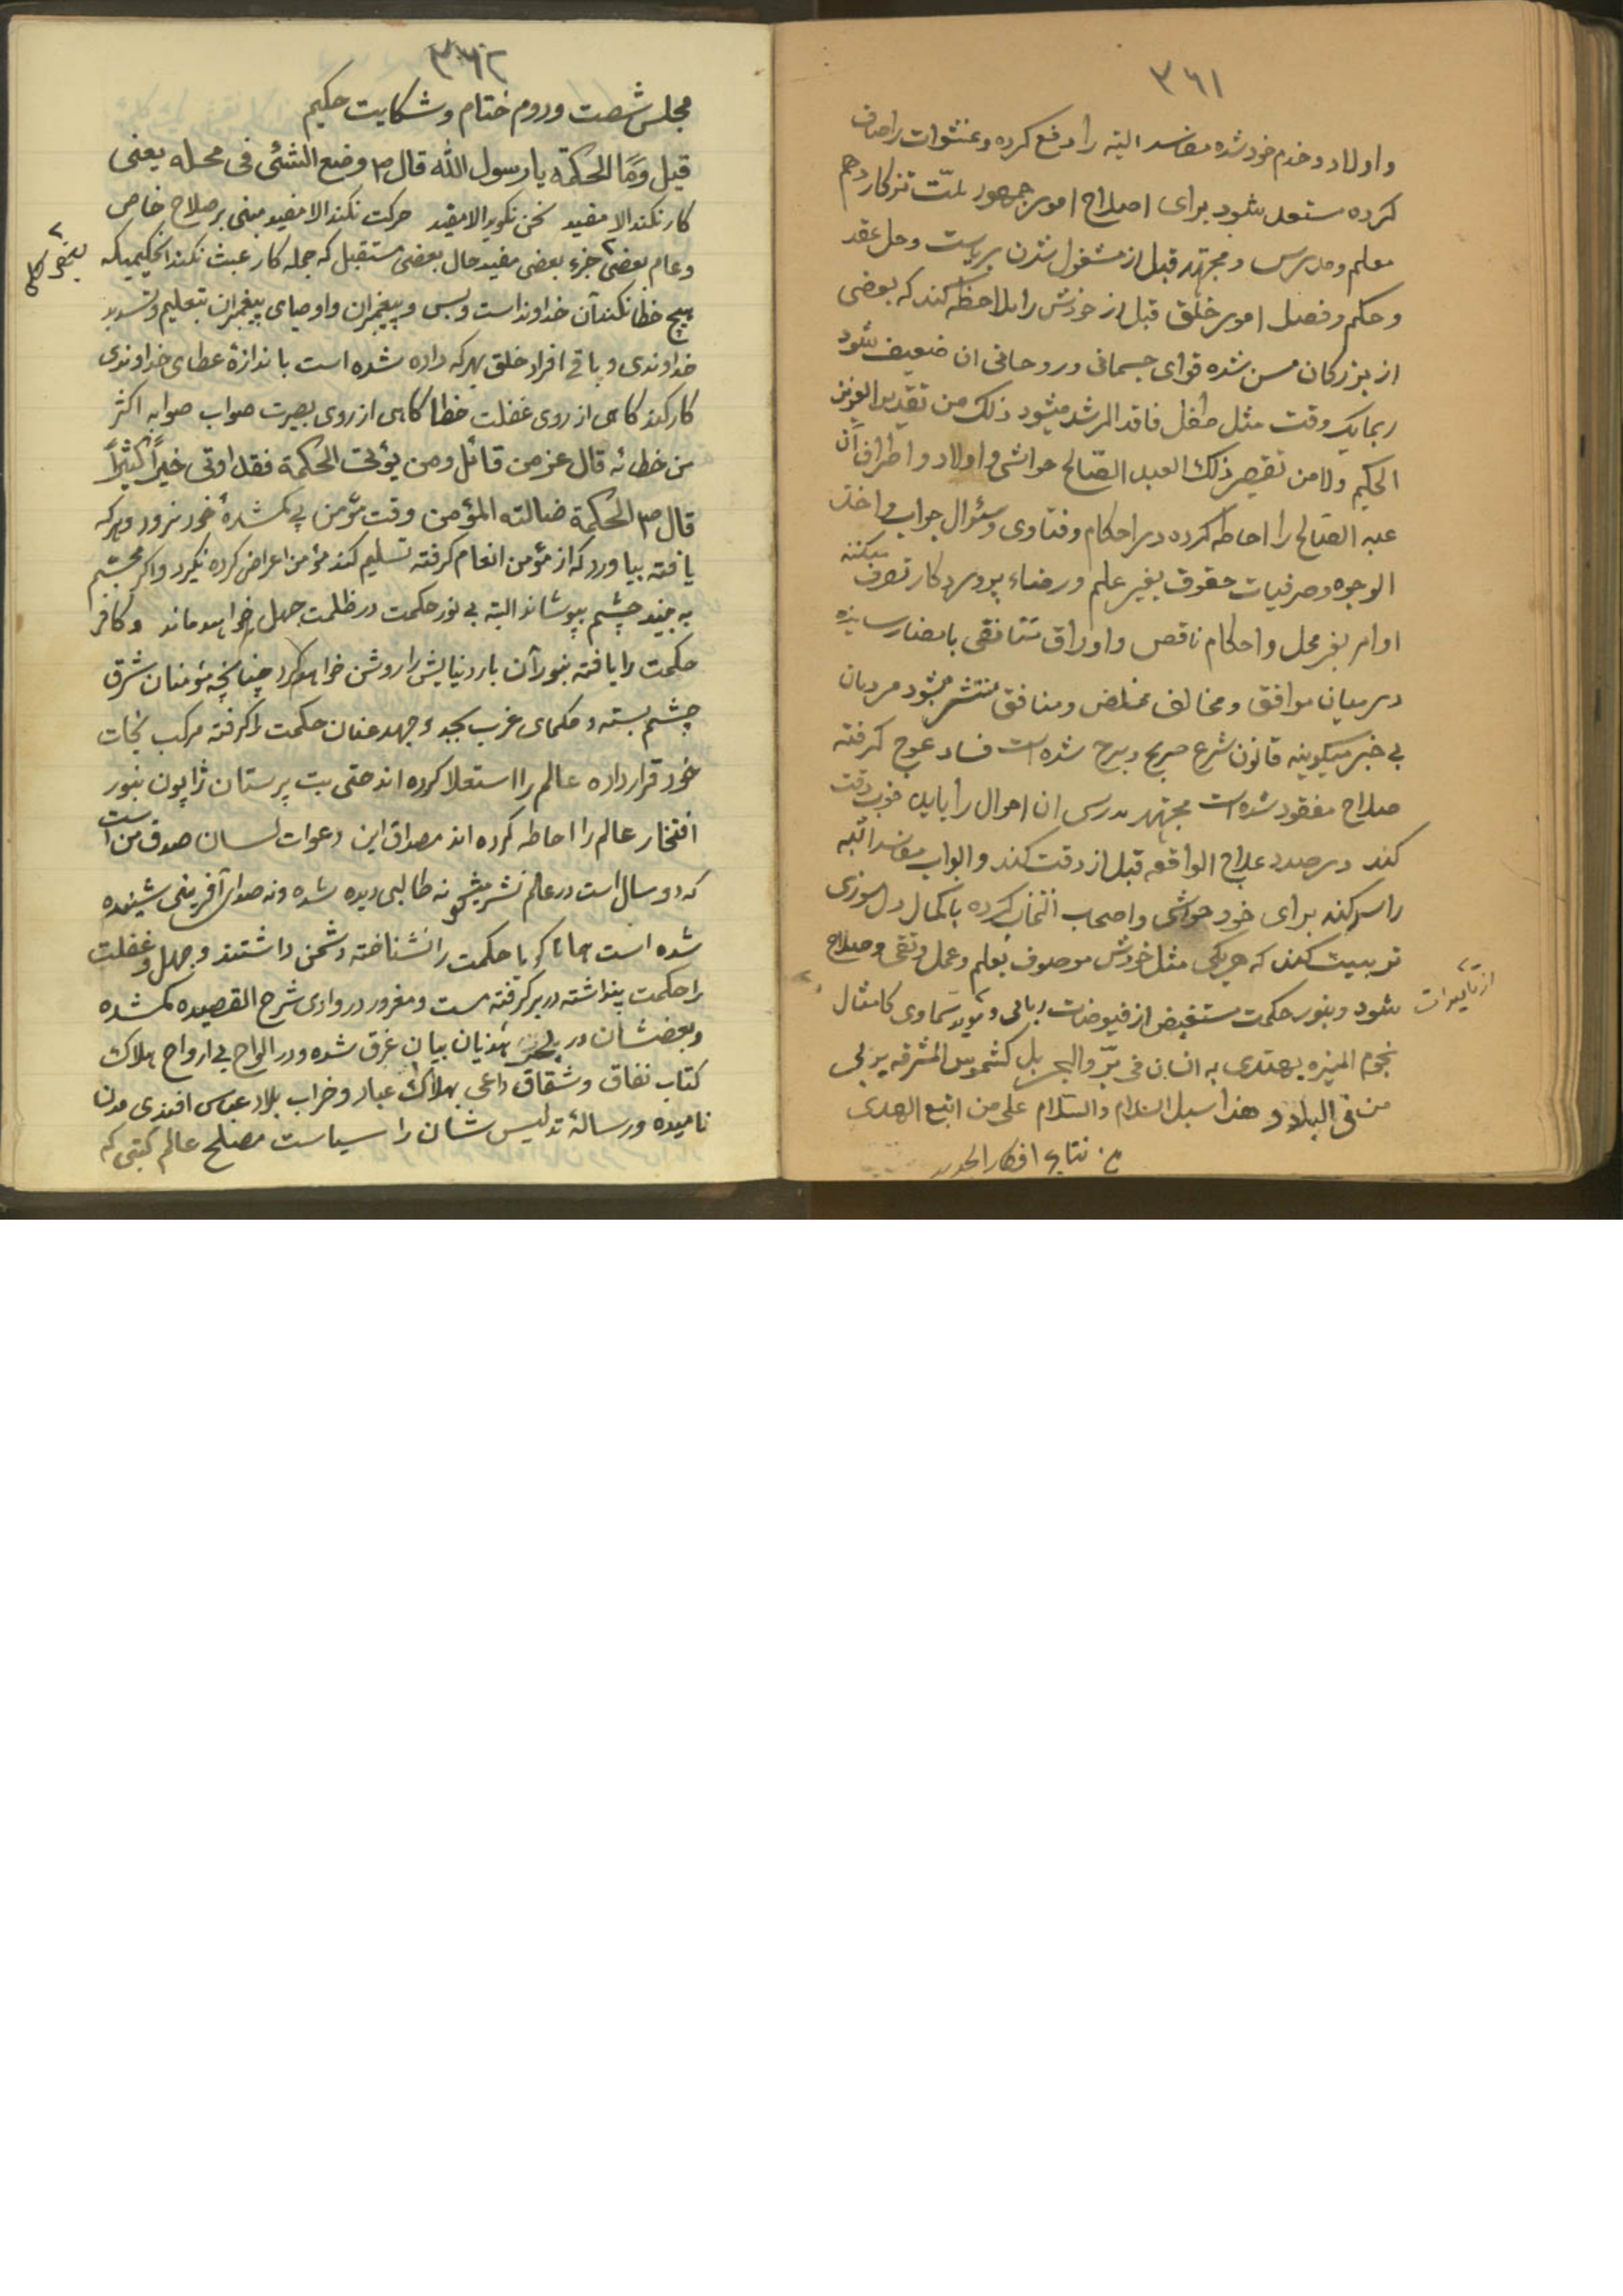 ٣٦١
واولاد و خدم خود شده مفاسد البته را دفع کرده و عنثوات را صاف
کرده مستعد شود برای اصلاح امور جمهور ملّت تذکار دهم
معلم ومدرس ومجتهد قبل از مشغول شدن بریاست وحل عقد
و حکم وفصل امور خلق قبل از خودش را ملاحظه کند که بعضی
از بزرکان مسن شده قوای جسمانی وروحانی ان ضعیف شود
ربما یک وقت مثل طفل فاقد الرشد میشود ذلک من تقدیر العزیز
الحکیم ولا من تقصیر ذلک العبد الصّالح حواشی واولاد واطراف آن
عبد الصّالح را احاطه کرده در احکام وفتاوی وسئوال جواب واخذ
الوجوه وصرفیات حقوق بغیر علم ورضاء پروردکار تصرف میکنند
اوامر بغیر محل واحکام ناقص واوراق متناقض بامضار سانیده
در میان موافق ومخالف مخلص ومنافق منتشر میشود مردمان
بی خبر میکویند قانون شرع هرج ومرج شده است فساد عروج کرفته
صلاح مفقود شده است مجتهد مدرس ان احوال را باید خوب دقت
کند در صدد علاج الواقعه قبل از دقت کند وابواب مفاسد اتیه
را سد کند برای خود حواشی واصحاب انتخاب کرده باکمال دل سوزی
تربیت کند که هر یکی مثل خودش موصوف بعلم وعمل وتقی وصلاح
شود وبنور حکمت مستفیض از فیوضات ربانی و مؤید سماوی کامثال
از تأییدات
نجوم المنیره یهتدی به انسان فی برّ والبحر بل کشموس المشرقه یربی
من فی البلاد و هذا سبل السلام والسّلام علی من اتبع الهدی
م. نتایج افکار الجدید
٣٦٢
مجلس شصت ودوم ختام وشکایت حکیم
قیل وَمَا الحکمة یا رسول الله قال ص وضع الشئی فی محله یعنی
کار نکند الا مفید سخن نکوید الا مفید حرکت نکند الا مفید مبنی بر صلاح خاص
وعام بعضی جزء بعضی مفید حال بعضی مستقبل که جمله کار عبث نکند الحکیمیکه
بعضی کلی
هیچ خطا نکند آن خداوند است وبس وپیغمبران واوصیای پیغمبران بتعلیم وتسدید
خداوندی وباقی افراد خلق بهر که داده شده است باندازهٔ عطای خداوندی
کار کند کاهی از روی غفلت خطا کاهی از روی بصیرت صواب صوابه اکثر
من خطائه قال عز من قائل ومن یؤتی الحکمة فقد اوتی خیراً کثیراً
قال ص الحکمة ضالته المؤمن وقت مؤمن پی کمشدهٔ خود نرود وهر که
یافته بیاورد که از مؤمن انعام کرفته تسلیم کند مؤمن اعراض کرده نکیرد واکر بچشم
به بیند چشم بپوشاند البته بی نور حکمت در ظلمت جهل خواهد ماند وکافر
حکمت را یافته بنور آن بار دنیایش را روشن خواهد کرد چنانچه مؤمنان شرق
چشم بسته وحکمای غرب بجد و جهد عنان حکمت را کرفته مرکب نجات
خود قرار داده عالم را استعلا کرده اند حتی بت پرستان ژاپون بنور
افتخار عالم را احاطه کرده اند مصداق این دعوات لسان صدق من است
که دو سال است در عالم نشر میشود نه طالبی دیده شده ونه صدای آفرینی شنیده
شده است همانا کویا حکمت را نشناخته دشمن داشتند و جهل وغفلت
را حکمت پنداشته در بر کرفته مست ومغرور در وادی شرح القصیده کمشده
وبعضشان در بحر هذیان بیان غرق شده ودر الواح بی ارواح هلاک
کتاب نفاق وشقاق داعی بهلاک عباد وخراب بلاد عباس افندی مدن
نامیده ورسالهٔ تدلیس شان را سیاست مصلح عالم کیتی که